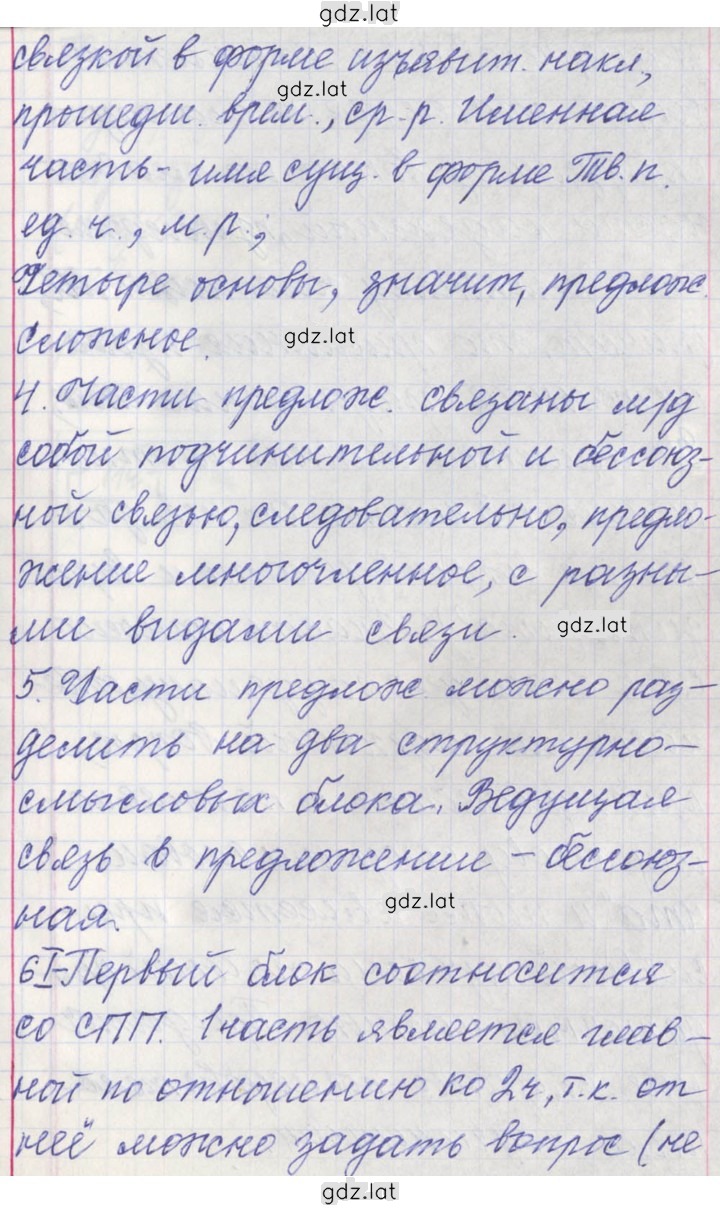 gdz.lat
связкой в форме изъявит. накл,
gdz.lat
прошедш. врем., ср. р. Именная
часть - имя сущ. в форме Тв. п.
ед. ч., м. р.;
Четыре основы, значит, предлож.
сложное.
gdz.lat
4. Части предлож. связаны м/д
собой подчинительной и бессоюз-
ной связью, следовательно, предло-
жение многочленное, с разны-
ми видами связи.
gdz.lat
5. Части предлож. можно раз-
делить на два структурно-
смысловых блока. Ведущая
связь в предложение - бессоюз-
ная.
gdz.lat
6 I-Первый блок соотносится
со СПП. 1 часть является глав-
ной по отношению ко 2 ч, т. к. от
неё можно задать вопрос (не
gdz.lat